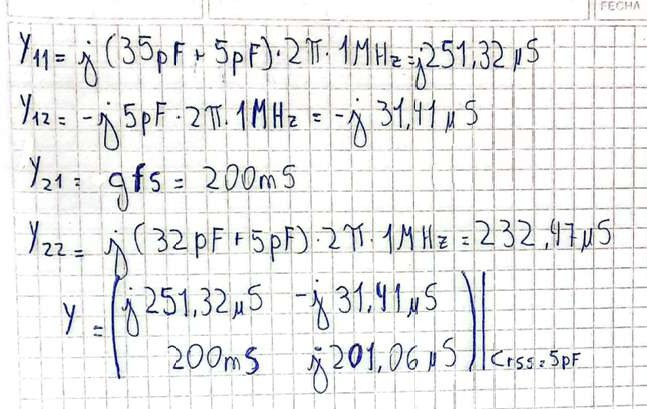 FECHA
Y11 = j (35pF + 5pF) · 2π · 1MHz = j251,32 μS
Y12 = -j 5pF · 2π · 1MHz = -j 31,41 μS
Y21 = gfs = 200mS
Y22 = j (32pF + 5pF) · 2π · 1MHz = 232,47 μS
Y = ( j 251,32 μS -j 31,41 μS
200mS j 201,06 μS ) | Crss = 5pF